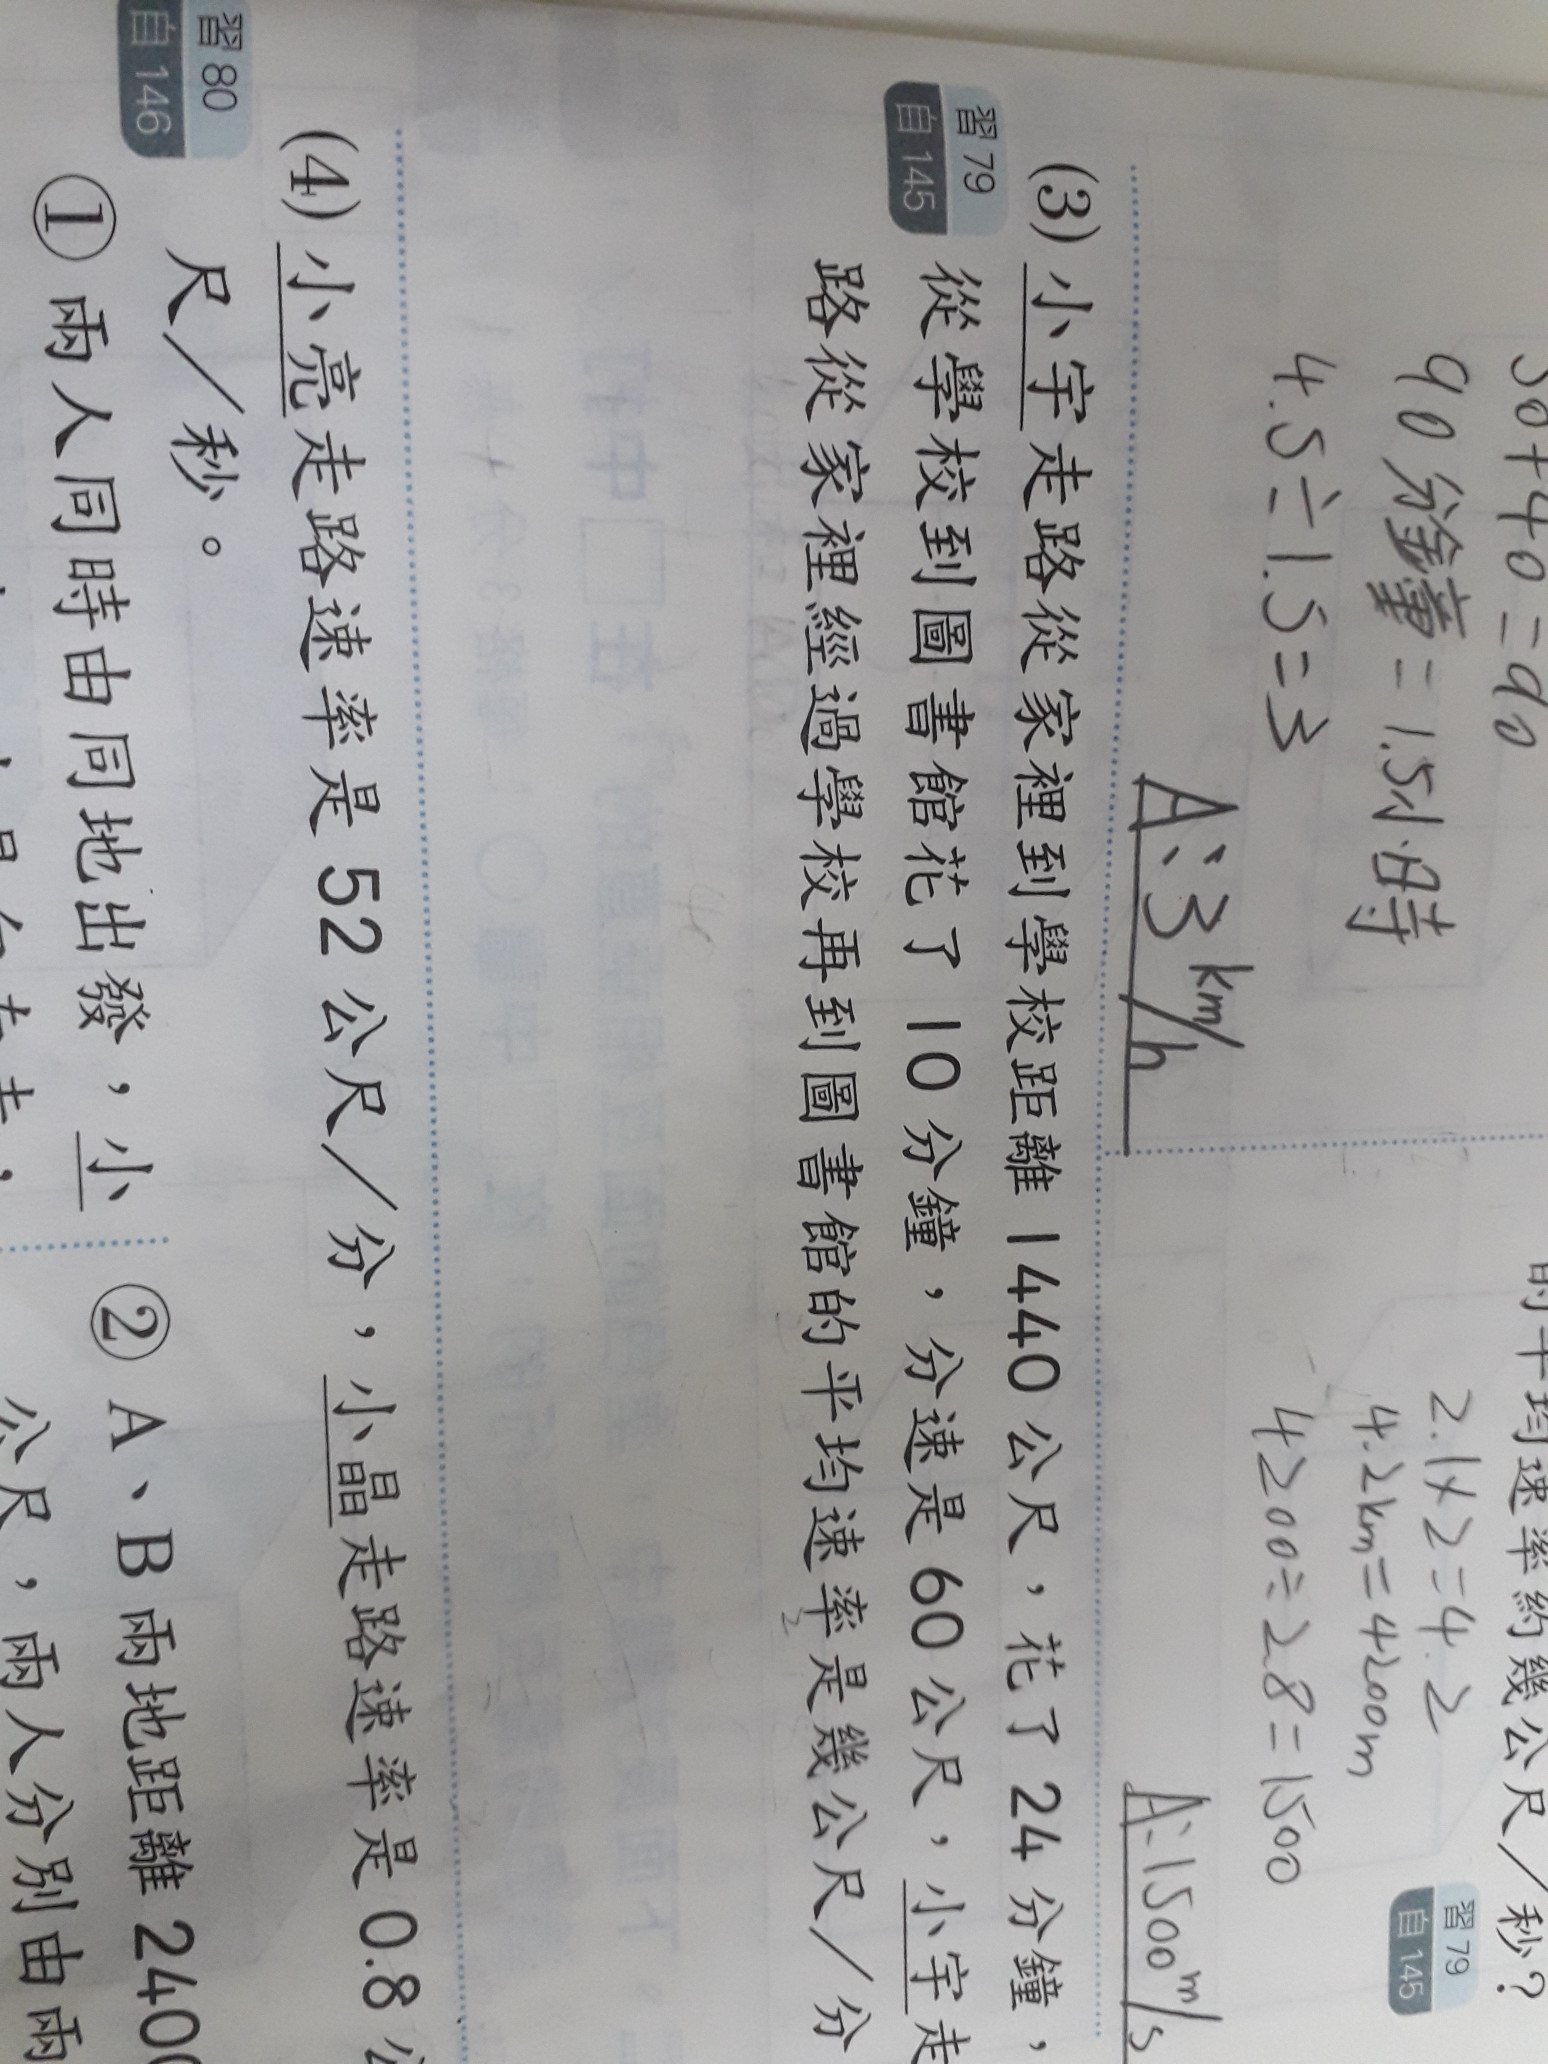 50+40=90
90分鐘=1.5小時
4.5÷1.5=3
A:3km/h
的平均速率約幾公尺／秒？
2.1×2=4.2
4.2km=4200m
4200÷28=1500
A:1500m/s
習79
自145
(3) 小宇走路從家裡到學校距離1440公尺，花了24分鐘，
從學校到圖書館花了10分鐘，分速是60公尺，小宇走
路從家裡經過學校再到圖書館的平均速率是幾公尺／分
習79
自145
(4) 小亮走路速率是52公尺／分，小晶走路速率是0.8公
尺／秒。
習80
自146
① 兩人同時由同地出發，小
② A、B兩地距離240
公尺，兩人分別由兩